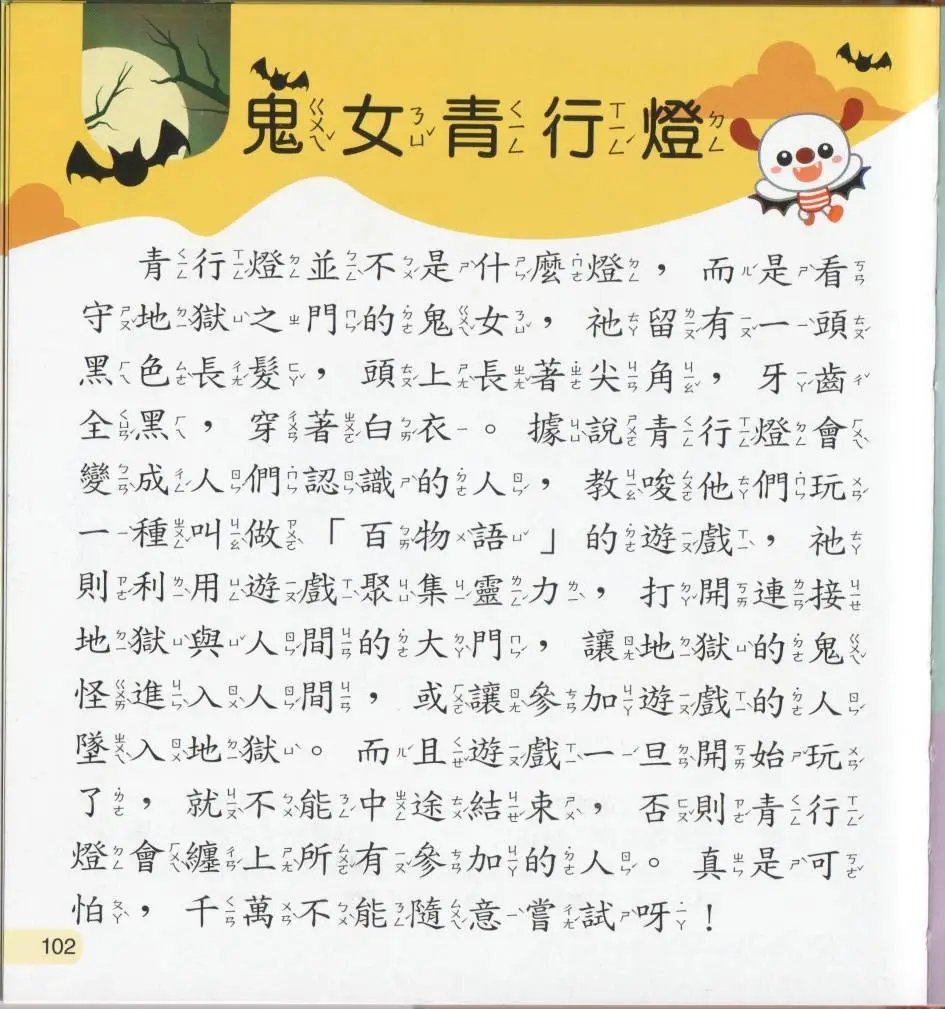 鬼女青行燈
青行燈並不是什麼燈，而是看
守地獄之門的鬼女，祂留有一頭
黑色長髮，頭上長著尖角，牙齒
全黑，穿著白衣。據說青行燈會
變成人們認識的人，教唆他們玩
一種叫做「百物語」的遊戲，祂
則利用遊戲聚集靈力，打開連接
地獄與人間的大門，讓地獄的鬼
怪進入人間，或讓參加遊戲的人
墜入地獄。而且遊戲一旦開始玩
了，就不能中途結束，否則青行
燈會纏上所有參加的人。真是可
怕，千萬不能隨意嘗試呀！
102